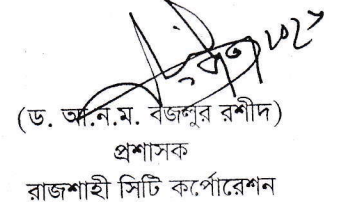 (ড. আ.ন.ম. বজলুর রশীদ)
প্রশাসক
রাজশাহী সিটি কর্পোরেশন